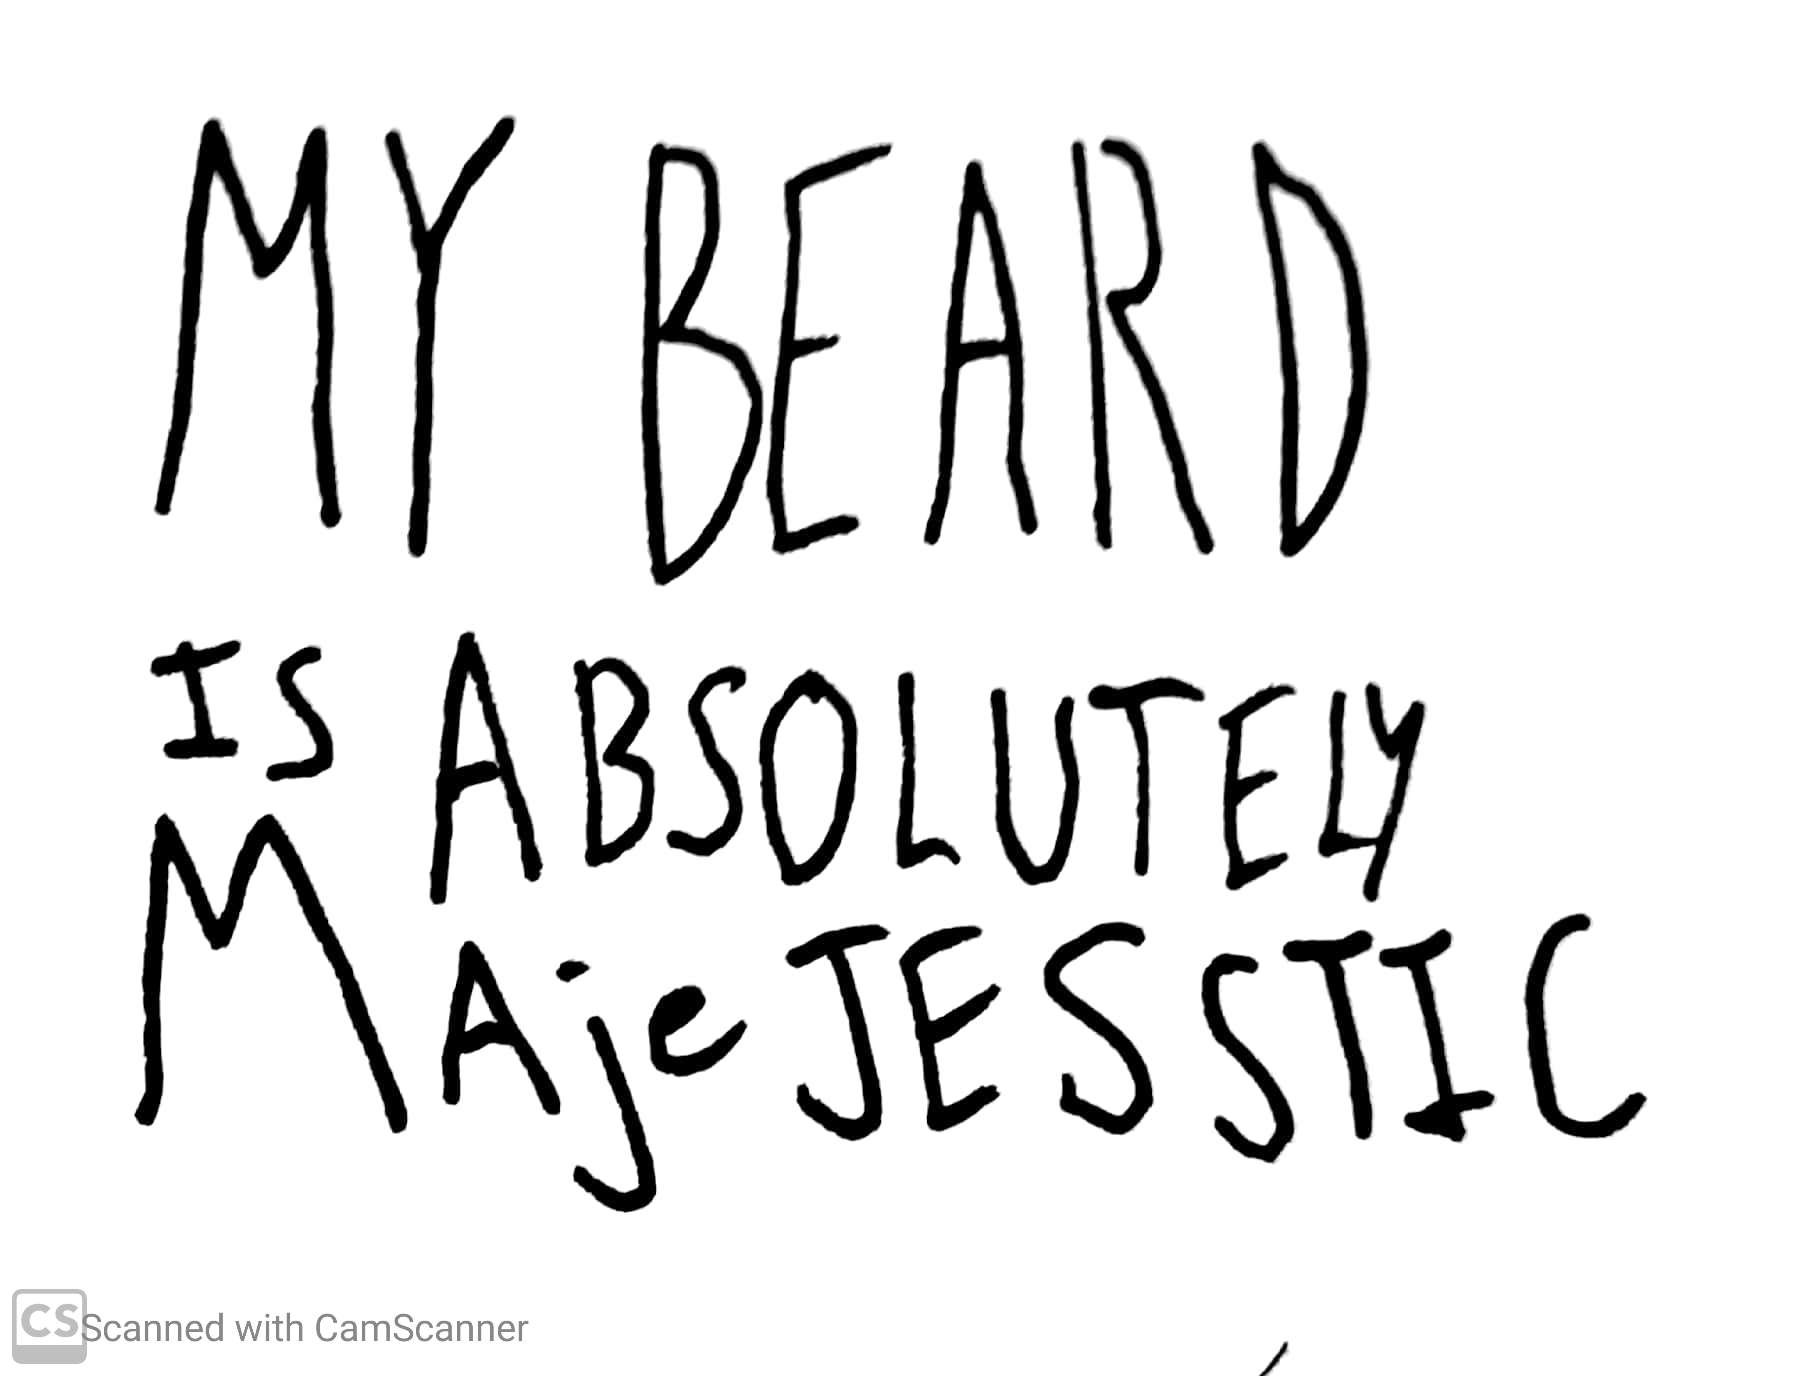 MY BEARD
IS ABSOLUTELY
MAjeJESSTIC
CS Scanned with CamScanner